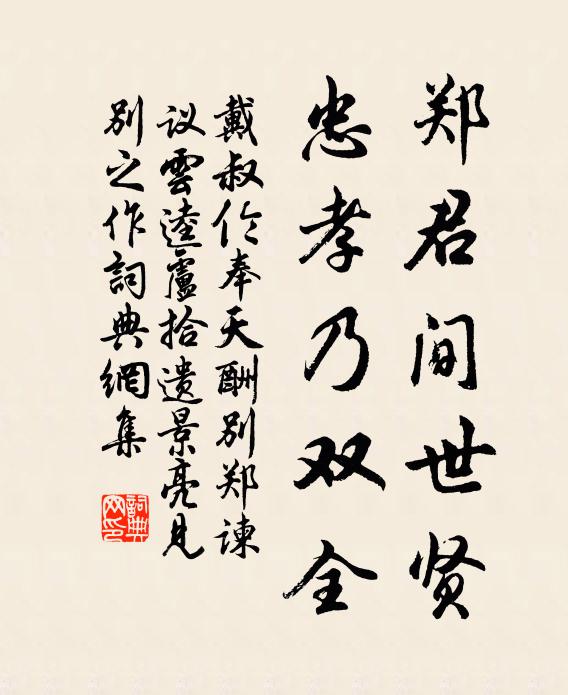 郑君间世贤
忠孝乃双全
戴叔伦奉天酬别郑谏
议雲逵盧拾遗景亮见
别之作詞典網集
詞典網印